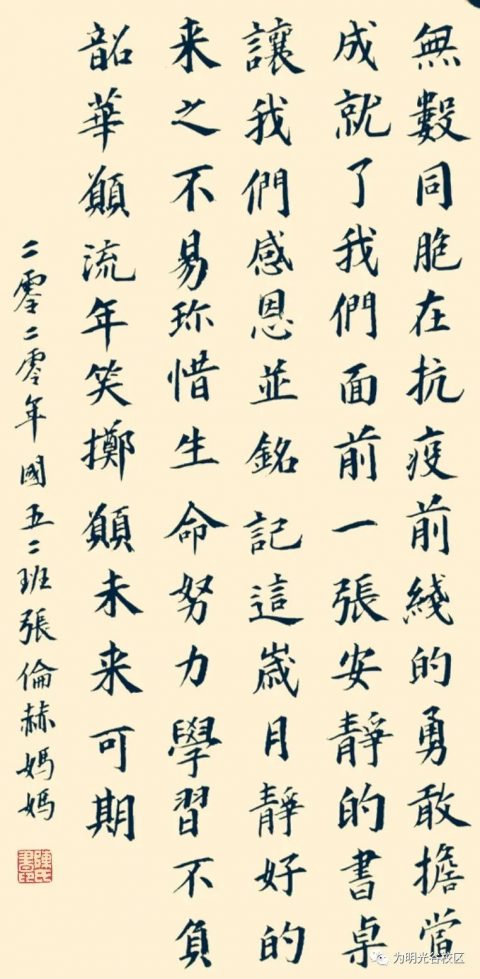 無數同胞在抗疫前綫的勇敢擔當
成就了我們面前一張安靜的書桌
讓我們感恩並銘記這歲月靜好的
来之不易珎惜生命努力學習不負
韶華願流年笑擲願未来可期
二零二零年國五二班張倫赫媽媽
为明光谷校区